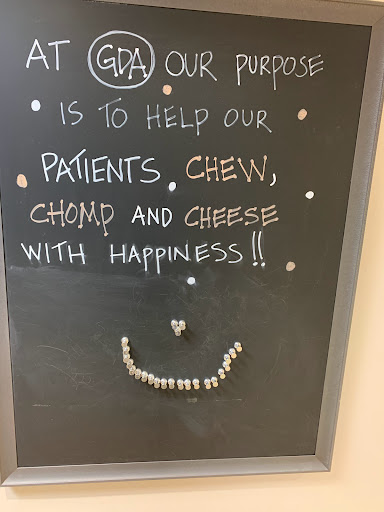 AT GDA OUR PURPOSE
IS TO HELP OUR
PATIENTS CHEW,
CHOMP AND CHEESE
WITH HAPPINESS!!